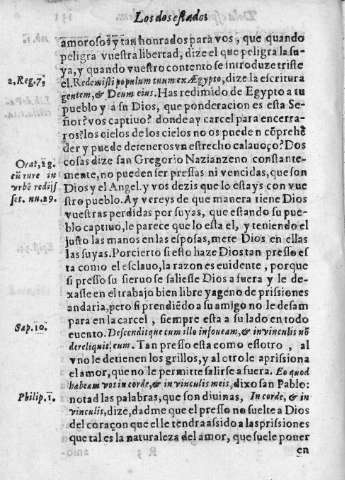 Los dos estados
amorosos y tan honrados para vos, que quando
peligra vuestra libertad, dize el que peligra la su-
ya, y quando vuestro contento se introduze triste
2. Reg. 7.
el. Redemisti populum tuum ex Ægypto, dize la escritura
gentem, & Deum eius. Has redimido de Egypto a tu
pueblo y a su Dios, que ponderacion es esta Se
ñor? vos captiuo? donde ay carcel para encerra-
ros? los cielos de los cielos no os puedẽ cõprehẽ
der y puede deteneros vn estrecho calauoço? Dos
Orat. 18.
cosas dize san Gregorio Nazianzeno constante-
mente, no pueden ser pressas ni vencidas, que son
vrbẽ redijs
Dios y el Angel. y vos dezis que lo estays con vue
set. nu. 29.
stro pueblo. Ay vereys de que manera tiene Dios
vuestras perdidas por suyas, que estando su pue-
blo captiuo, le parece que lo esta el, y teniendo el
justo las manos en las esposas, mete Dios en ellas
las suyas. Por cierto si esto haze Dios tan presso es
ta como el esclauo, la razon es euidente, porque
si presso su sieruo se saliesse Dios a fuera y le de-
xasse en el trabajo bien libre y ageno de prissiones
andaria, pero si prendiẽdo a su amigo no le desam
para en la carcel, siempre esta a su lado en todo
Sap. 10.
euento. Descendit que cum illo in foueam, & in vinculis nõ
dereliquit eum. Tan presso esta como el otro, al
vno le detienen los grillos, y al otro le aprisiona
el amor, que no le permite salirse a fuera. Eo quod
habeam vos in corde, & in vinculis meis, dixo san Pablo:
Philip. 1.
notad las palabras, que son diuinas, In corde, & in
vinculis, dize, dadme que el presso no suelte a Dios
del coraçon que el le tendra assido a las prissiones
que tal es la naturaleza del amor, que suele poner
en